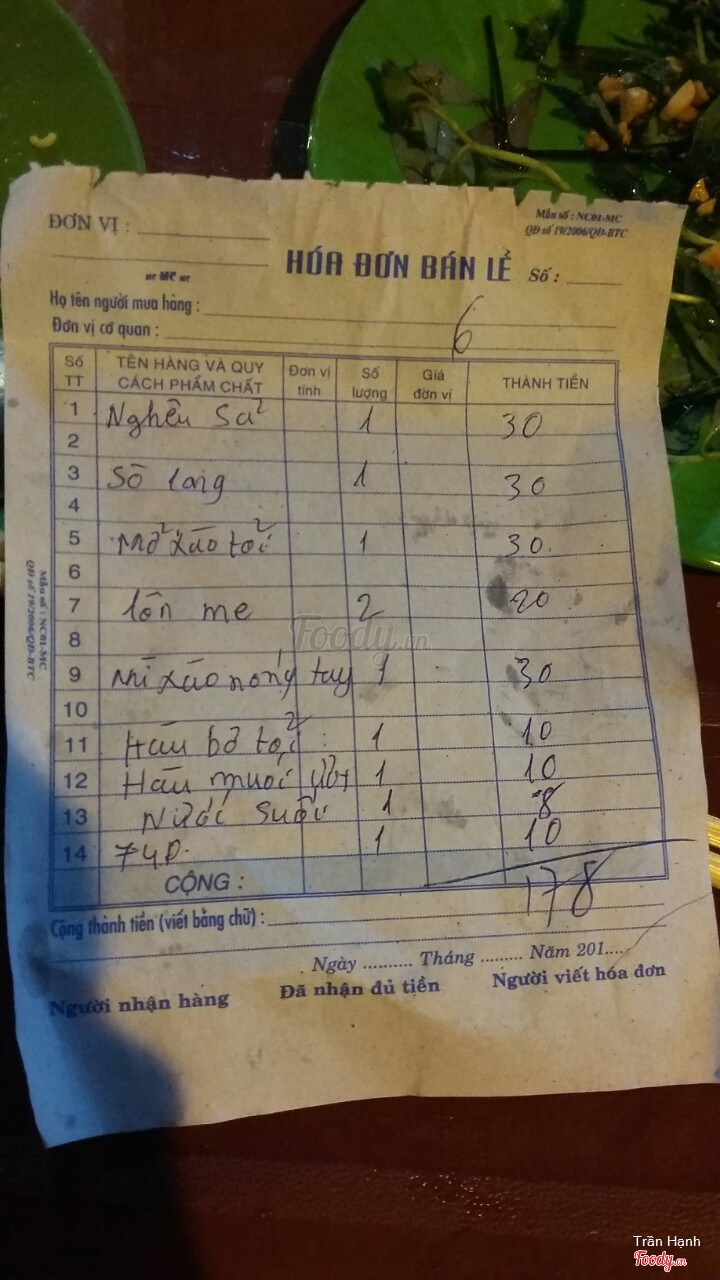 Mẫu số : NC01-MC
QĐ số 19/2006/QĐ-BTC
ĐƠN VỊ :
MC
HÓA ĐƠN BÁN LẺ Số :
Họ tên người mua hàng :
Đơn vị cơ quan : 6
Số TT TÊN HÀNG VÀ QUY CÁCH PHẨM CHẤT Đơn vị tính Số lượng Giá đờn vị THÀNH TIỀN
1 Nghêu Sả 1 30
2
3 Sò lông 1 30
4
5 Mở xào tỏi 1 30
6
7 lôn me 2 20
8
9 Mì xào nóng tay 1 30
10
11 Hàu bở tỏi 1 10
12 Hàu muối ớt 1 10
13 Nước Suối 1 8
14 7up 1 10
CỘNG : 178
Cộng thành tiền (viết bằng chữ) :
Ngày .......... Tháng ......... Năm 201....
Người nhận hàng Đã nhận đủ tiền Người viết hóa đơn
Mẫu số : NC01-MC
QĐ số 19/2006/QĐ-BTC
Foody.vn
Trần Hạnh
Foody.vn